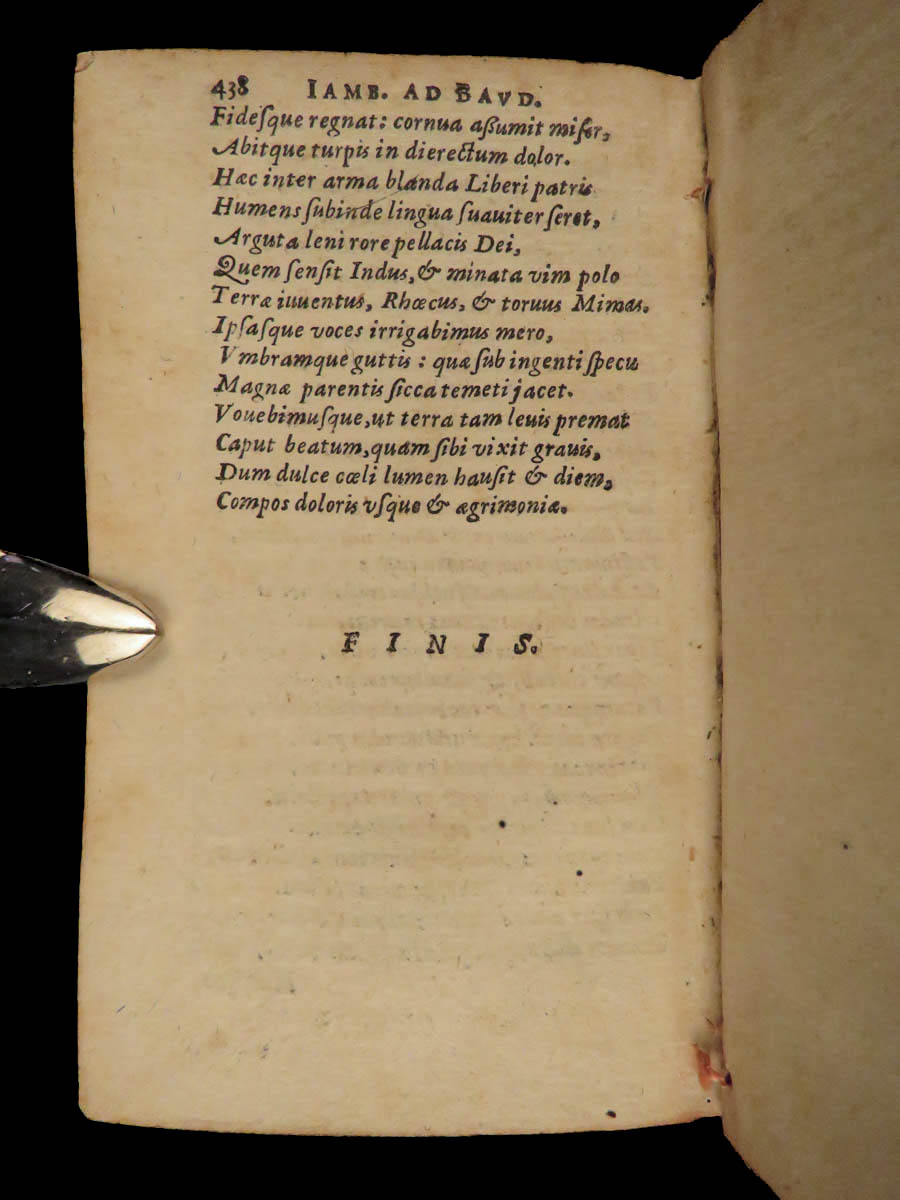 438 IAMB. AD BAVD.
Fideſque regnat: cornua aßumit miſer,
Abitque turpis in dierectum dolor.
Hæc inter arma blanda Liberi patris
Humens ſubinde lingua ſuauiter ſeret,
Arguta leni rore pellacis Dei,
Quem ſenſit Indus, & minata vim polo
Terræ iuuentus, Rhœcus, & toruus Mimas.
Ipſaſque voces irrigabimus mero,
Vmbramque guttis: quæ ſub ingenti ſpecu
Magnæ parentis ſicca temeti jacet.
Vouebimuſque, ut terra tam leuis premat
Caput beatum, quam ſibi vixit grauis,
Dum dulce cœli lumen hauſit & diem,
Compos doloris vſque & ægrimoniæ.
FINIS.